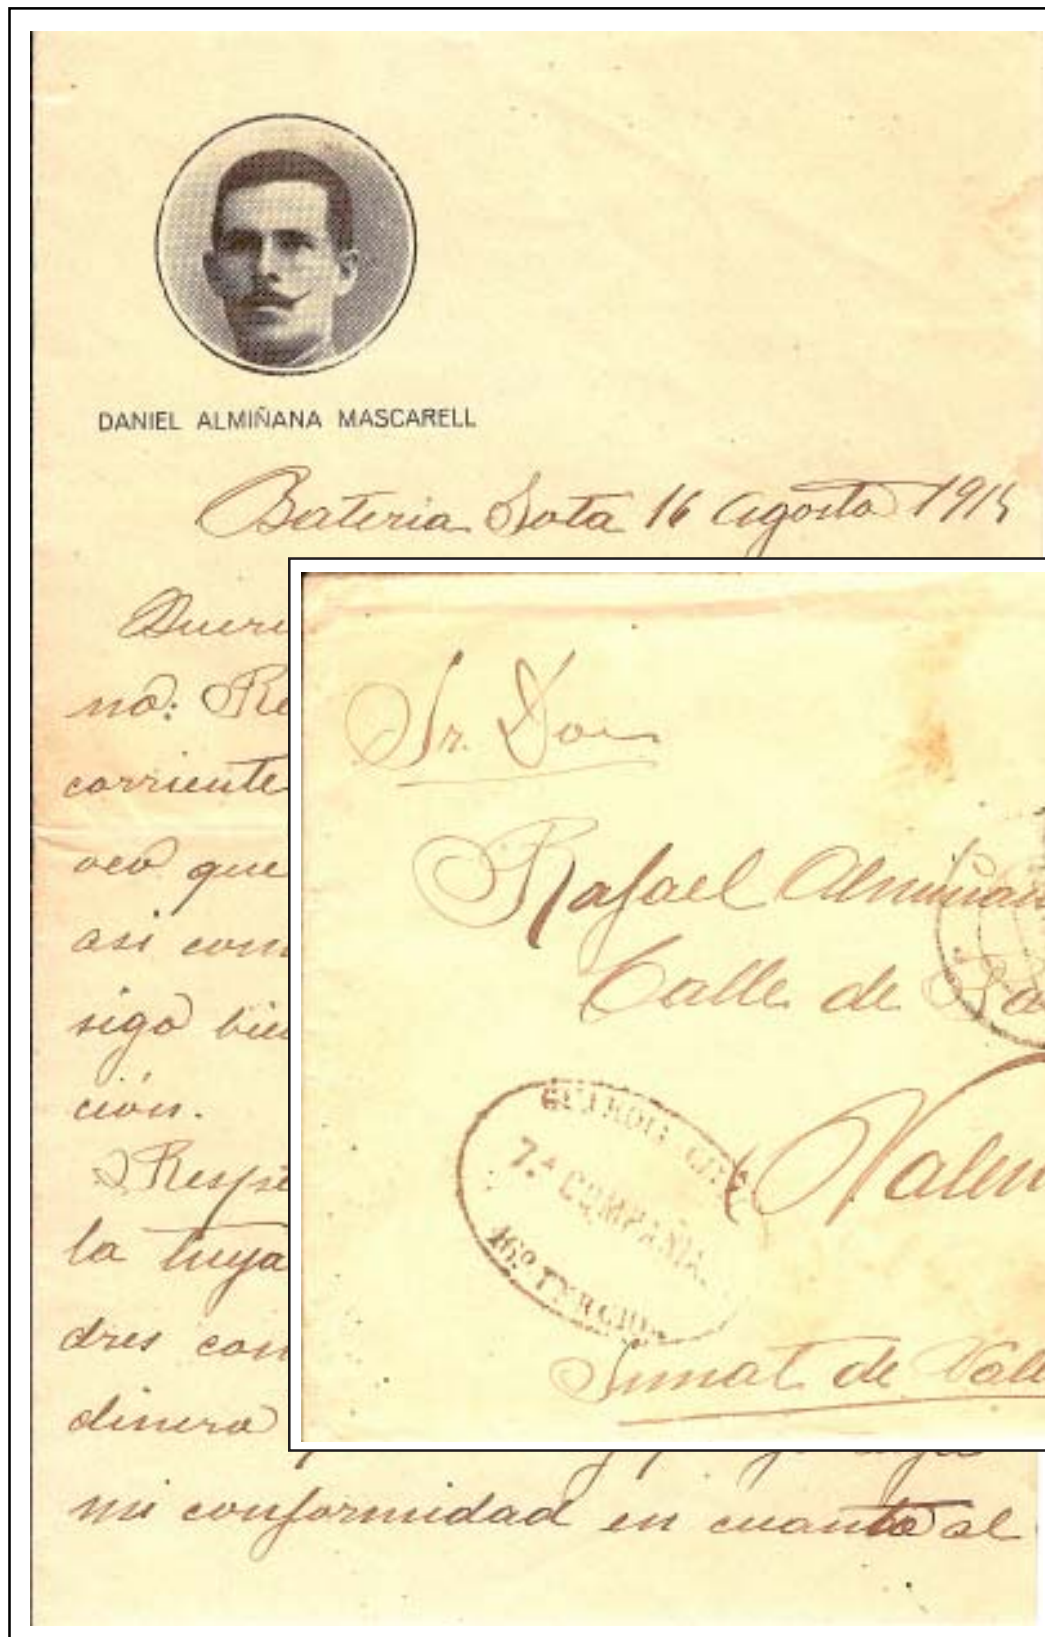 DANIEL ALMIÑANA MASCARELL
Bateria Sota 16 Agosto 1915
Queri
no: Re
corriente
veo que
asi com
sigo bien
ción.
Respe
la tuya
dres con
dinero
mi conformidad en cuanto al
Sr. Don
Rafael Almiñan
Calle de
Valen
GUARDIA CIVIL
7.ª COMPAÑIA
16º TERCIO
Simat de Vall